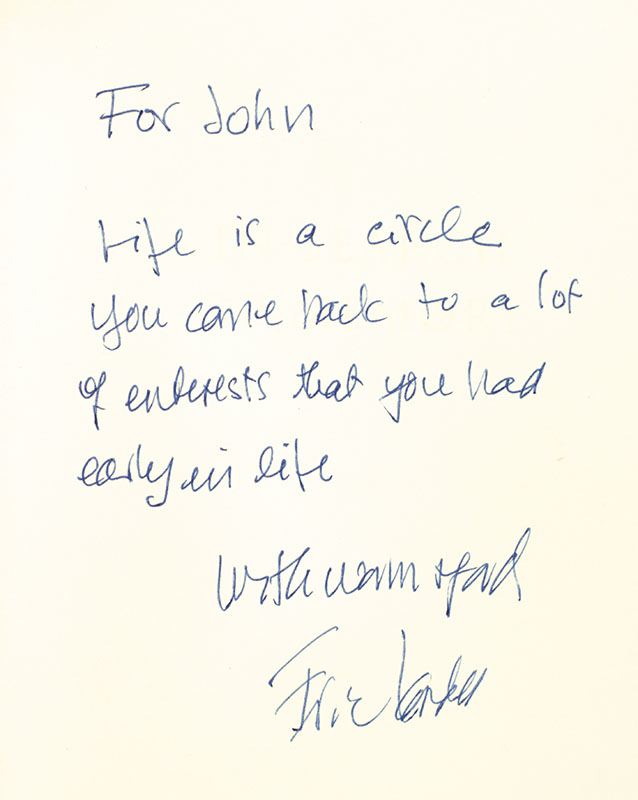 For John
Life is a circle
you come back to a lot
of enterests that you had
early in life
With warm regard
Eric Kandel